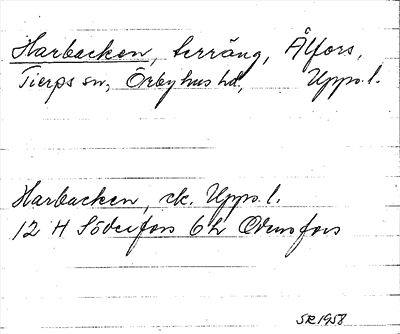 Harbacken, terräng, Älfors,
Tierps sn, Örbyhus hd, Upps. l.
Harbacken, ek. Upps. l.
12 H Söderfors 6h Odensfors
SR 1958